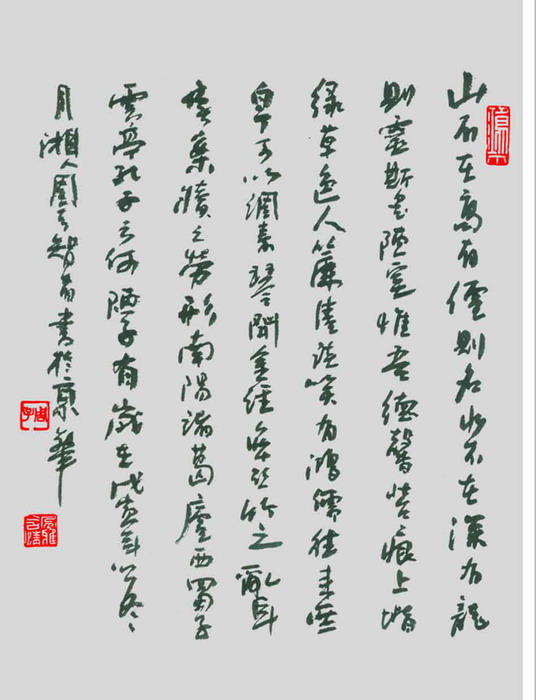 山不在高有僊則名水不在深有龍
則靈斯是陋室惟吾德馨苔痕上堦
綠草色入簾青談笑有鴻儒往來無
丁可以調素琴閱金經無絲竹之亂耳
無案牘之勞形南陽諸葛廬西蜀子
雲亭孔子云何陋之有歲在戊寅年冬
月湘人智書於京華